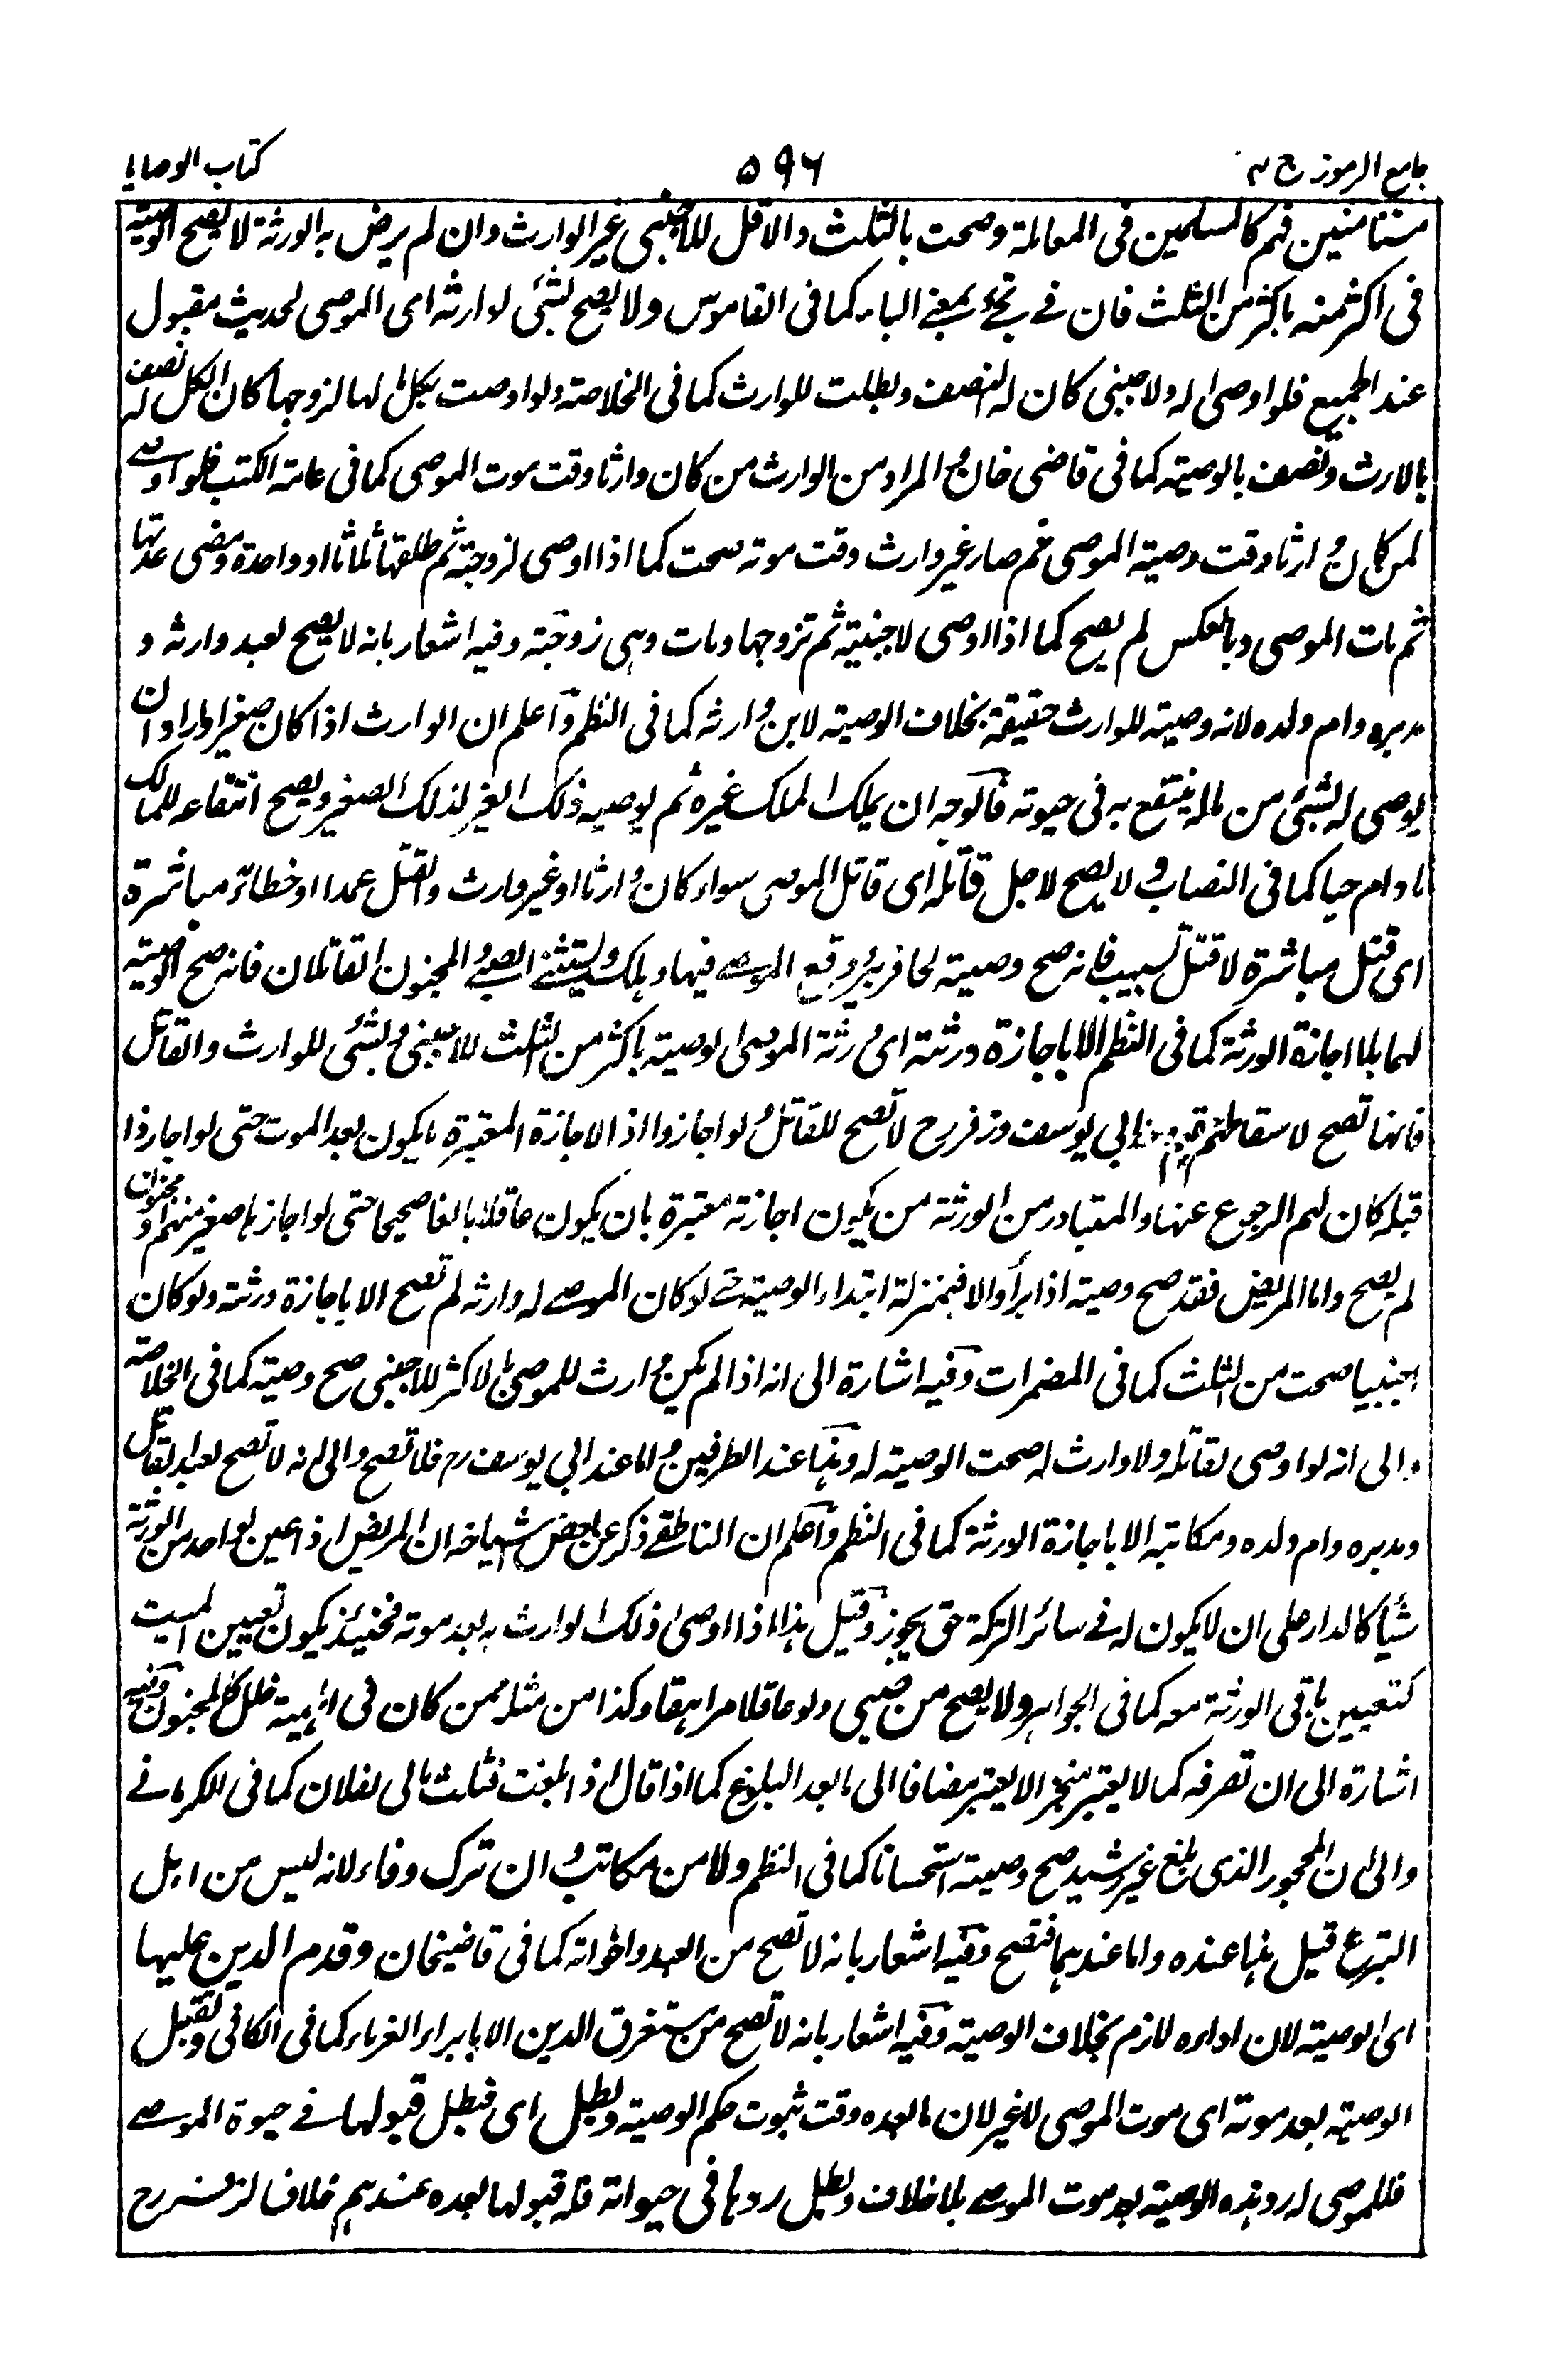 جامع الرموز ج ٢
٥٩٦
كتاب الوصايا
مستامنين فهم كالمسلمين فى المعاملة وصحت بالثلث والاقل للاجنبى غير الوارث وان لم يرض به الورثة لا يصح الوصية
فى اكثر منه باكثر من الثلث فان فى تجئ بمعنى الباء كما فى القاموس ولا يصح بشئ لوارثه اى الموصى لحديث مقبول
عند الجميع فلو اوصى له ولاجنبى كان له النصف وبطلت للوارث كما فى الخلاصة ولو اوصت بكل لها لزوجها كان الكل له نصف
بالارث ونصف بالوصية كما فى قاضى خان والمراد من الوارث من كان وارثا وقت موت الموصى كما فى عامة الكتب فلو اوصى
لمن كان وارثا وقت وصية الموصى ثم صار غير وارث وقت موته صحت كما اذا اوصى لزوجته ثم طلقها ثلاثا او واحدة ومضى عدتها
ثم مات الموصى وبالعكس لم يصح كما اذا اوصى لاجنبية ثم تزوجها ومات وهى زوجته وفيه اشعار بانه لا يصح لعبد وارثه و
مدبره وام ولده لانه وصية للوارث حقيقة بخلاف الوصية لابن وارثه كما فى النظم واعلم ان الوارث اذا كان صغيرا واراد ان
يوصى له بشئ من ماله ينتفع به فى حيوته فالوجه ان يملك الملك غيره ثم يوصيه ذلك الغير لذلك الصغير ويصح انتفاعه للمالك
ما دام حيا كما فى النصاب ولا يصح لاجل قاتله اى قاتل الموصى سواء كان وارثا او غير وارث والقتل عمدا او خطاء مباشرة
اى قتل مباشرة لا قتل تسبيب فانه صح وصية لحافر بئر وقع الموصى فيها وهلك ويستثنى الصبى والمجنون القاتلان فانه صح الوصية
لهما بلا اجازة الورثة كما فى النظم الا باجازة ورثته اى ورثة الموصى الوصية باكثر من الثلث للاجنبى وبشئ للوارث والقاتل
فانها تصح لاسقاطهم ابى يوسف وزفر رح لا تصح للقاتل ولو اجازوا اذ الاجازة المعتبرة ما يكون بعد الموت حتى لو اجازوا
قبله كان لهم الرجوع عنها والمتبادر من الورثة من يكون اجازته معتبرة بان يكون عاقلا بالغا صحيحا حتى لو اجازها صغير منهم او مجنون
لم يصح واما المريض فقد صح وصيته اذا برأ والا فبمنزلة ابتداء الوصية حتى لو كان الموصى له وارثه لم تصح الا باجازة ورثته ولو كان
اجنبيا صحت من الثلث كما فى المضمرات وفيه اشارة الى انه اذا لم يكن وارث للموصى بالاكثر للاجنبى صح وصية كما فى الخلاصة
والى انه لو اوصى لقاتله ولا وارث له صحت الوصية له وهذا عند الطرفين واما عند ابى يوسف رح فلا تصح والى انه لا تصح لعبد القاتل
ومدبره وام ولده ومكاتبه الا باجازة الورثة كما فى النظم واعلم ان الناطفى ذكر عن بعض اشياخه ان المريض اذا عين لواحد من الورثة
شيأ كالدار على ان لا يكون له فى سائر التركة حق يجوز وقيل هذا اذا اوصى ذلك الوارث به بعد موته فحينئذ يكون تعيين الميت
كتعيين باقى الورثة معه كما فى الجواهر ولا يصح من صبى ولو عاقلا مراهقا وكذا من مثله ممن كان فى اهليته خلل كالمجنون وفيه
اشارة الى ان تصرفه كما لا يعتبر منجزا لا يعتبر مضافا الى ما بعد البلوغ كما اذا قال اذا بلغت فثلث مالى لفلان كما فى الكرمانى
والى ان المحجور الذى بلغ غير رشيد صح وصيته استحسانا كما فى النظم ولا من مكاتب وان ترك وفاء لانه ليس من اهل
التبرع قيل هذا عنده واما عندهما فتصح وفيه اشعار بانه لا تصح من العبد واخواته كما فى قاضيخان وقدم الدين عليها
اى الوصية لان اداءه لازم بخلاف الوصية وفيه اشعار بانه لا تصح من مستغرق الدين الا بابراء الغرماء كما فى الكافى وتقبل
الوصية بعد موته اى موت الموصى لا غير لان ما بعده وقت ثبوت حكم الوصية وبطل اى فبطل قبولها فى حيوة الموصى
فللموصى له رد هذه الوصية بعد موت الموصى بلا خلاف وبطل ردها فى حيواته فله قبولها بعده عندهم خلافا لزفر رح